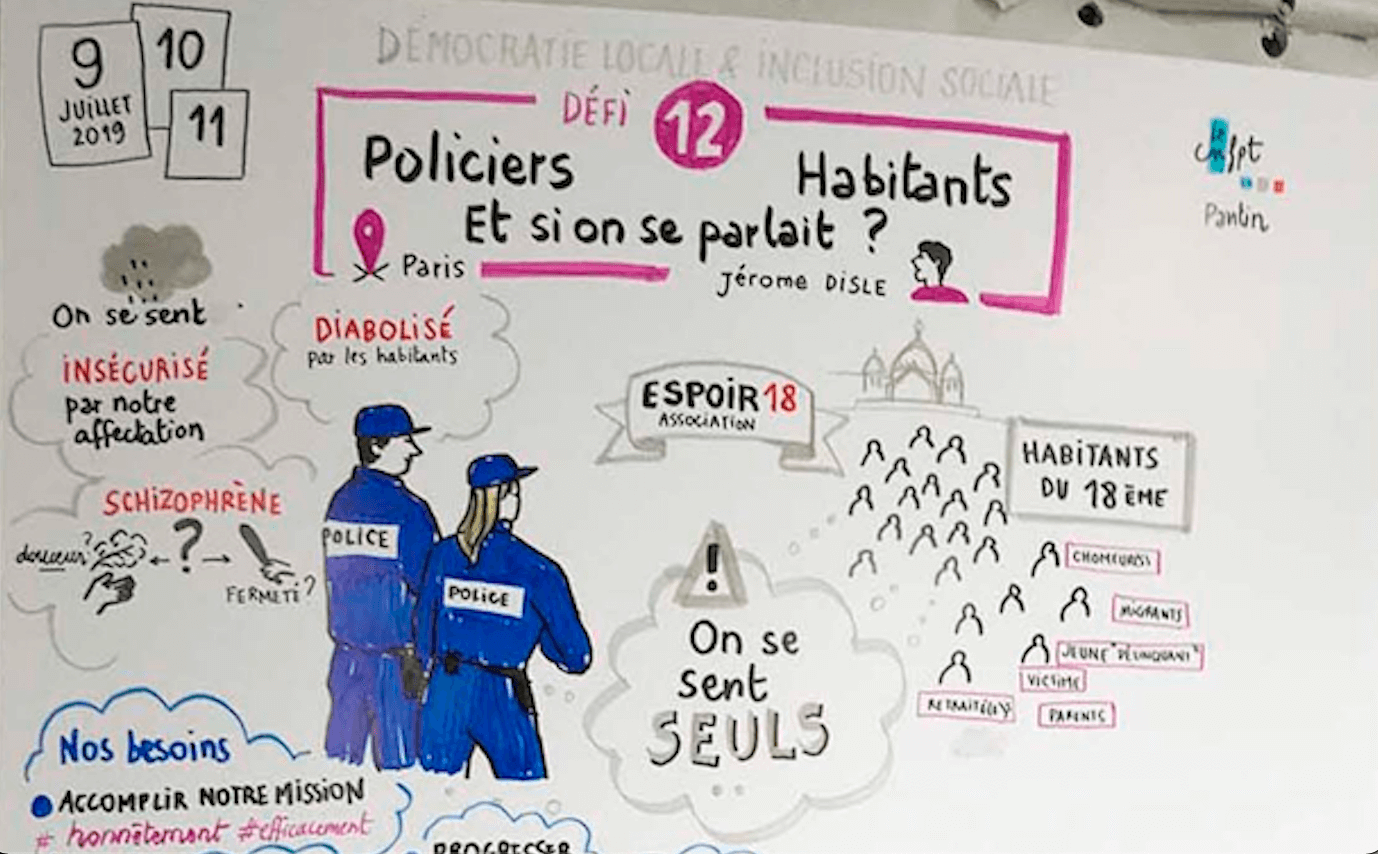 9
JUILLET
2019
10
11
DÉMOCRATIE LOCALE & INCLUSION SOCIALE
DÉFI 12
Policiers Habitants
Et si on se parlait ?
Paris
Jérome DISLE
le cnfpt
Pantin
On se sent
INSÉCURISÉ
par notre
affectation
DIABOLISÉ
par les habitants
SCHIZOPHRÈNE
douceur?
?
FERMETÉ?
POLICE
POLICE
ESPOIR 18
ASSOCIATION
HABITANTS
DU 18ÈME
!
On se
sent
SEULS
MIGRANTS
JEUNE "DÉLINQUANT"
VICTIME
PARENTS
Nos besoins
ACCOMPLIR NOTRE MISSION
# honnêtement #efficacement
PROGRESSER